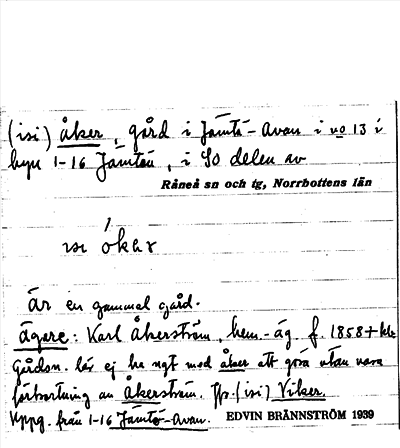 (isi) åker, gård i Jämtö-Avan i no 13 i
byn 1-16 Jämtön, i SO delen av
Råneå sn och tg, Norrbottens län
isi
är en gammal gård.
ägare: Karl Åkerström, hem.-äg. f. 1858
Gårdsn. lär ej ha ngt med åker att göra utan vara
förkortning av Åkerström. Jfr. (isi) Viker.
Uppg. från 1-16 Jämtö-Avan. EDVIN BRÄNNSTRÖM 1939